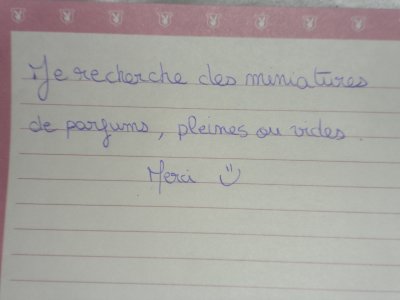 Je recherche des miniatures
de parfums, pleines ou vides.
Merci :)